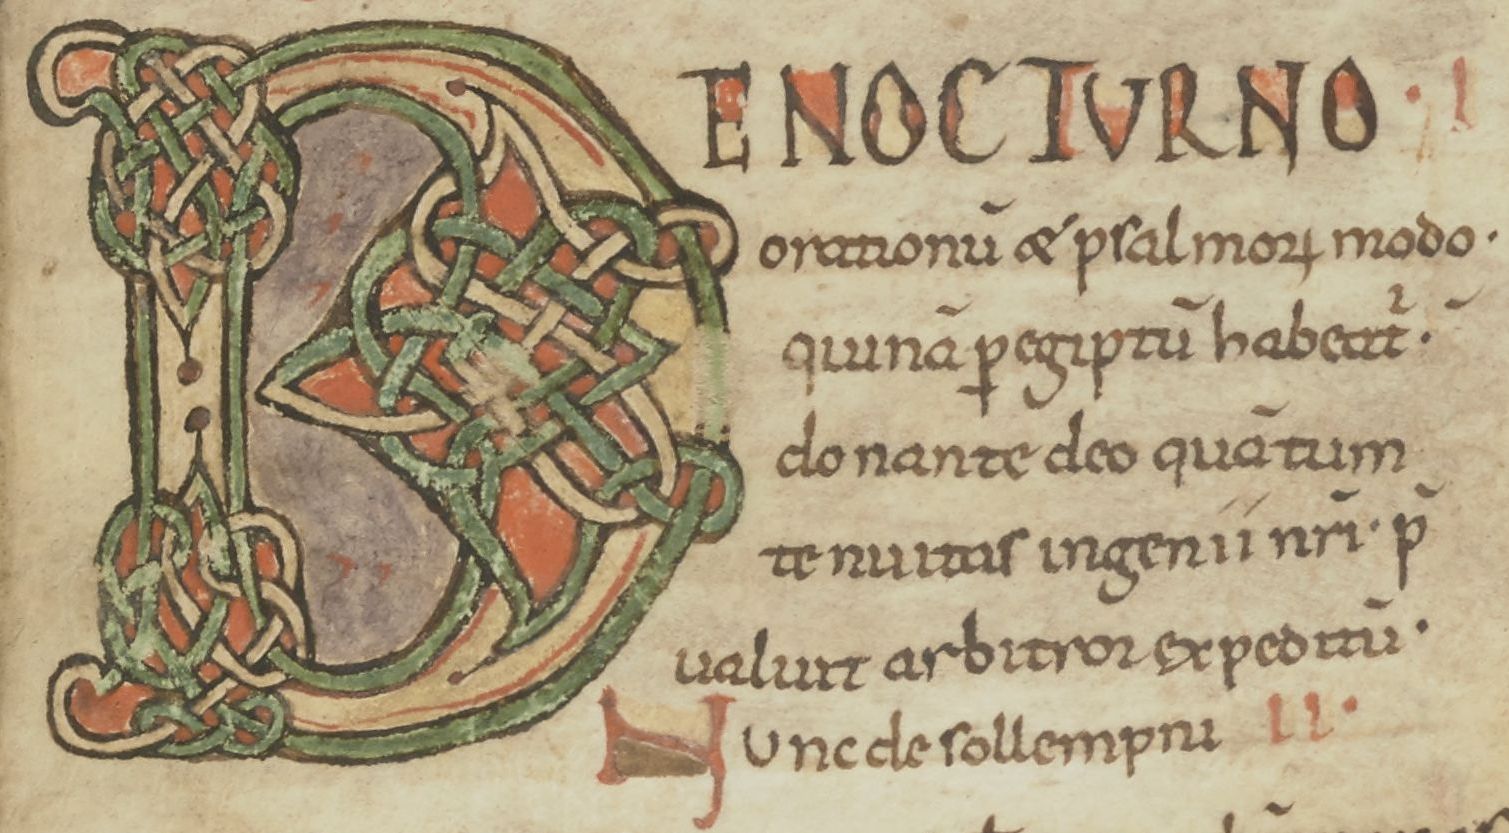 DE NOCTURNO · I
orationū & psalmoꝝ modo ·
qui unā ꝑ egiptū habeat̃ ·
donante deo quātum
tenuitas ingenii nr̄i · p̄
ualuit arbitror expeditū ·
Nunc de sollempni II ·